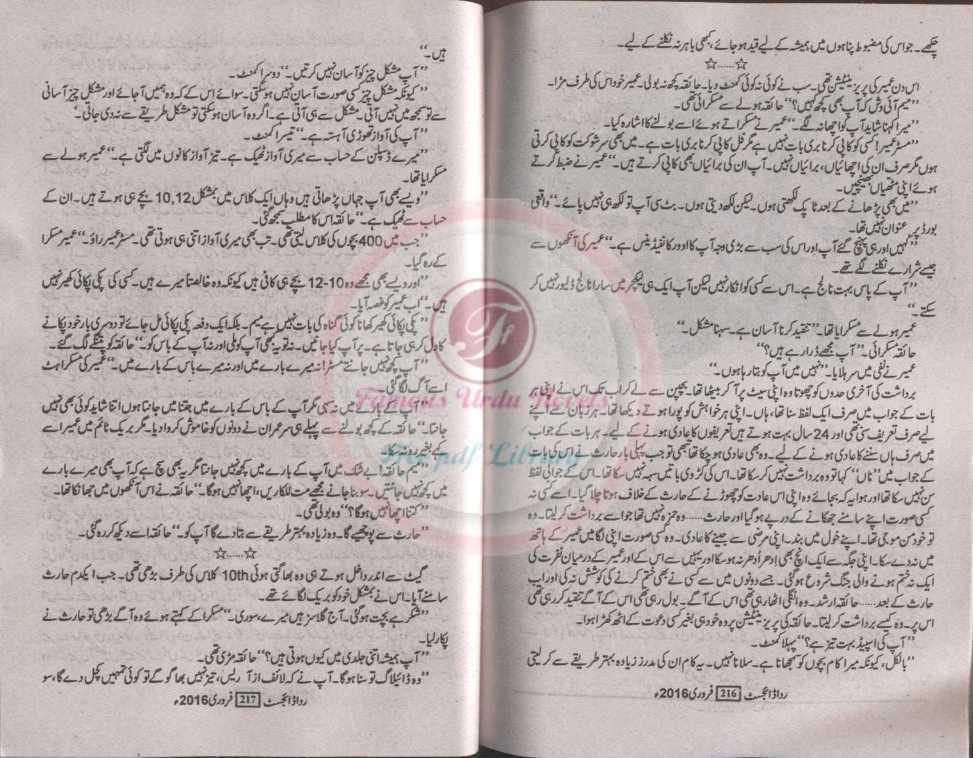 چکھے۔ جو اس کی مضبوط پناہوں میں ہمیشہ کے لیے قید ہو جائے، کبھی باہر نہ نکلنے کے لیے۔
☆......☆
اس دن عمیر کی پریزینٹیشن تھی۔ سب نے کوئی نہ کوئی کمنٹ دیا۔ حائقہ کچھ نہ بولی۔ عمیر خود اس کی طرف مڑا۔
”میم آئی وش کہ آپ بھی کچھ کہیں؟“ حائقہ ہولے سے مسکرائی تھی۔
”میرا کہنا شاید آپ کو اچھا نہ لگے۔“ عمیر نے مسکراتے ہوئے اسے بولنے کا اشارہ کیا۔
”مسٹر عمیر! کسی کو کاپی کرنا بری بات نہیں ہے مگر فل کاپی کرنا بری بات ہے۔ میں بھی سر شوکت کو کاپی کرتی
ہوں مگر صرف ان کی اچھائیاں، برائیاں نہیں۔ آپ ان کی برائیاں بھی کاپی کرتے ہیں۔“ عمیر نے ضبط کرتے
ہوئے اپنی مٹھیاں بھینچیں۔
”میں بھی پڑھانے کے بعد ٹاپک لکھتی ہوں۔ لیکن لکھ دیتی ہوں۔ بٹ سی آپ تو لکھ ہی نہیں پائے۔“ واقعی
بورڈ پر عنوان نہیں تھا۔
”کہیں اور ہی پہنچ گئے آپ اور اس کی سب سے بڑی وجہ آپ کا اوور کانفیڈینس ہے۔“ عمیر کی آنکھوں سے
جیسے شرارے نکلنے لگے تھے۔
”آپ کے پاس بہت نالج ہے۔ اس سے کسی کو انکار نہیں لیکن آپ ایک ہی لیکچر میں سارا نالج ڈلیور نہیں کر
سکتے۔“
عمیر ہولے سے مسکرایا تھا۔ ”تنقید کرنا آسان ہے۔ سہنا مشکل۔“
حائقہ مسکرائی۔ ”آپ مجھے ڈرا رہے ہیں؟“
عمیر نے نفی میں سر ہلایا۔ ”نہیں میں آپ کو بتا رہا ہوں۔“
برداشت کی آخری حدوں کو چھوتا وہ اپنی سیٹ پر آ کر بیٹھا تھا۔ بچپن سے لے کر اب تک اس نے اپنی ہر
بات کے جواب میں صرف ایک لفظ سنا تھا، ہاں۔ اپنی ہر خواہش کو پورا ہوتے دیکھا تھا۔ ہر زبان سے اپنے
لیے صرف تعریف سنی تھی اور 24 سال بہت ہوتے ہیں تعریفوں کا عادی ہونے کے لیے۔ ہر بات کے جواب
میں صرف ہاں سننے کا عادی ہونے کے لیے۔ وہ بھی عادی ہو چکا تھا تبھی تو جب پہلی بار حارث نے اس کی بات
کے جواب میں ”ناں“ کہا تو وہ برداشت نہیں کر سکا تھا۔ اس کی کڑوی باتیں سہہ نہیں سکا تھا۔ اس کے جوابی لفظ
سن نہیں سکا تھا اور ہوا یہ کہ بجائے وہ اپنی اس عادت کو چھوڑنے کے حارث کے خلاف ہوتا چلا گیا۔ اسے کسی نہ
کسی صورت اپنے سامنے جھکانے کے درپے ہو گیا اور حارث...... وہ حمزہ نہیں تھا جو اسے برداشت کر لیتا۔ وہ
تو خود من موجی تھا۔ اپنے خول میں بند۔ اپنی مرضی سے جینے کا عادی۔ وہ کسی صورت اپنی لگامیں عمیر کے ہاتھ
میں نہ دے سکا۔ اپنی جگہ سے ایک انچ بھی ادھر اُدھر نہ ہو سکا اور یہیں سے اس کے اور عمیر کے درمیان نفرت کی
ایک نہ ختم ہونے والی جنگ شروع ہو گئی۔ جسے دونوں میں سے کسی نے بھی ختم کرنے کی کوشش نہ کی اور اب
حارث کے بعد...... حائقہ ارشد۔ وہ انگلی اٹھا رہی تھی اس کے آگے۔ بول رہی تھی اس کے آگے تنقید کر رہی تھی
اس پر۔ وہ کیسے برداشت کر لیتا۔ حائقہ کی پریزینٹیشن پر وہ خود ہی بغیر کسی دعوت کے اٹھ کھڑا ہوا۔
”آپ کی اسپیڈ بہت تیز ہے؟“ پہلا کمنٹ۔
”بالکل، کیونکہ میرا کام بچوں کو سمجھانا ہے۔ سلانا نہیں۔ یہ کام ان کی مدرز زیادہ بہتر طریقے سے کر لیتی
رداڈائجسٹ 216 فروری 2016ء
ہیں۔“
”آپ مشکل چیز کو آسان نہیں کرتیں۔“ دوسرا کمنٹ۔
”کیونکہ مشکل چیز کسی صورت آسان نہیں ہو سکتی۔ سوائے اس کے کہ وہ ہمیں آ جائے اور مشکل چیز آسانی
سے سمجھ میں نہیں آتی۔ مشکل سے ہی آتی ہے۔ اگر وہ آسان ہو سکتی تو مشکل طریقے سے نہ دی جاتی۔“
”آپ کی آواز تھوڑی آہستہ ہے۔“ تیسرا کمنٹ۔
”میرے ڈسپلن کے حساب سے میری آواز ٹھیک ہے۔ تیز آواز کانوں میں لگتی ہے۔“ عمیر ہولے سے
مسکرایا تھا۔
”ویسے بھی آپ جہاں پڑھاتی ہیں وہاں ایک کلاس میں بمشکل 10,12 بچے ہی ہوتے ہیں۔ ان کے
حساب سے ٹھیک ہے۔“ حائقہ اس کا مطلب سمجھ گئی۔
”جب میں 400 بچوں کی کلاس لیتی تھی۔ تب بھی میری آواز اتنی ہی ہوتی تھی۔ مسٹر عمیر راؤ۔“ عمیر مسکرا
کے رہ گیا۔
”اور ویسے بھی مجھے وہ 10-12 بچے ہی کافی ہیں کیونکہ وہ خالصتاً میرے ہیں۔ کسی کی پکی پکائی کھیر نہیں
ہیں۔“ اب عمیر کو غصہ آیا۔
”پکی پکائی کھیر کھانا کوئی گناہ کی بات نہیں ہے میم۔ بلکہ ایک دفعہ پکی پکائی مل جائے تو دوسری بار خود پکانے
کا دل کر ہی جاتا ہے۔ پر آپ کیا جانیں۔ نہ تو یہ کبھی آپ کو ملی اور نہ آپ کے باس کو۔“ حائقہ کو پتنگے لگ گئے۔
”آپ کچھ نہیں جانتے مسٹر! نہ میرے بارے میں اور نہ میرے باس کے بارے میں۔“ عمیر کی مسکراہٹ
اسے آگ لگا گئی۔
”آپ کے بارے میں نہ سہی مگر آپ کے باس کے بارے میں جتنا میں جانتا ہوں اتنا شاید کوئی بھی نہیں
جانتا۔“ حائقہ کے کچھ بولنے سے پہلے ہی سر عمران نے دونوں کو خاموش کروا دیا۔ مگر بریک ٹائم میں عمیر اسے
کہے بغیر رہ نہ سکا۔
”میم حائقہ! بے شک میں آپ کے بارے میں کچھ نہیں جانتا مگر یہ بھی سچ ہے کہ آپ بھی میرے بارے
میں کچھ نہیں جانتیں۔ سو بنا جانے مجھے مت للکاریں، اچھا نہیں ہوگا۔“ حائقہ نے اس آنکھوں میں جھانکا تھا۔
”کتنا اچھا نہیں ہوگا؟“ وہ بولی تھی۔
”حارث سے پوچھیے گا۔ وہ زیادہ بہتر طریقے سے بتا دے گا آپ کو۔“ حائقہ اسے دیکھ کر رہ گئی۔
☆......☆
گیٹ سے اندر داخل ہوتے ہی وہ بھاگتی ہوئی 10th کلاس کی طرف بڑھی تھی۔ جب ایکدم حارث
سامنے آیا۔ اس نے بمشکل خود کو بریک لگائے تھے۔
”شکر ہے بچت ہو گئی۔ آج گلاسز ہیں میرے، سوری۔“ مسکرا کے کہتے ہوئے وہ آگے بڑھی تو حارث نے
پکار لیا۔
”آپ ہمیشہ اتنی جلدی میں کیوں ہوتی ہیں؟“ حائقہ مڑی تھی۔
”وہ ڈائیلاگ تو سنا ہوگا۔ آپ نے کہ لائف از آ ریس، تیز نہیں بھاگو گے تو کوئی تمہیں کچل دے گا، سو
رداڈائجسٹ 217 فروری 2016ء
Famous Urdu Novels
Free pdf Library